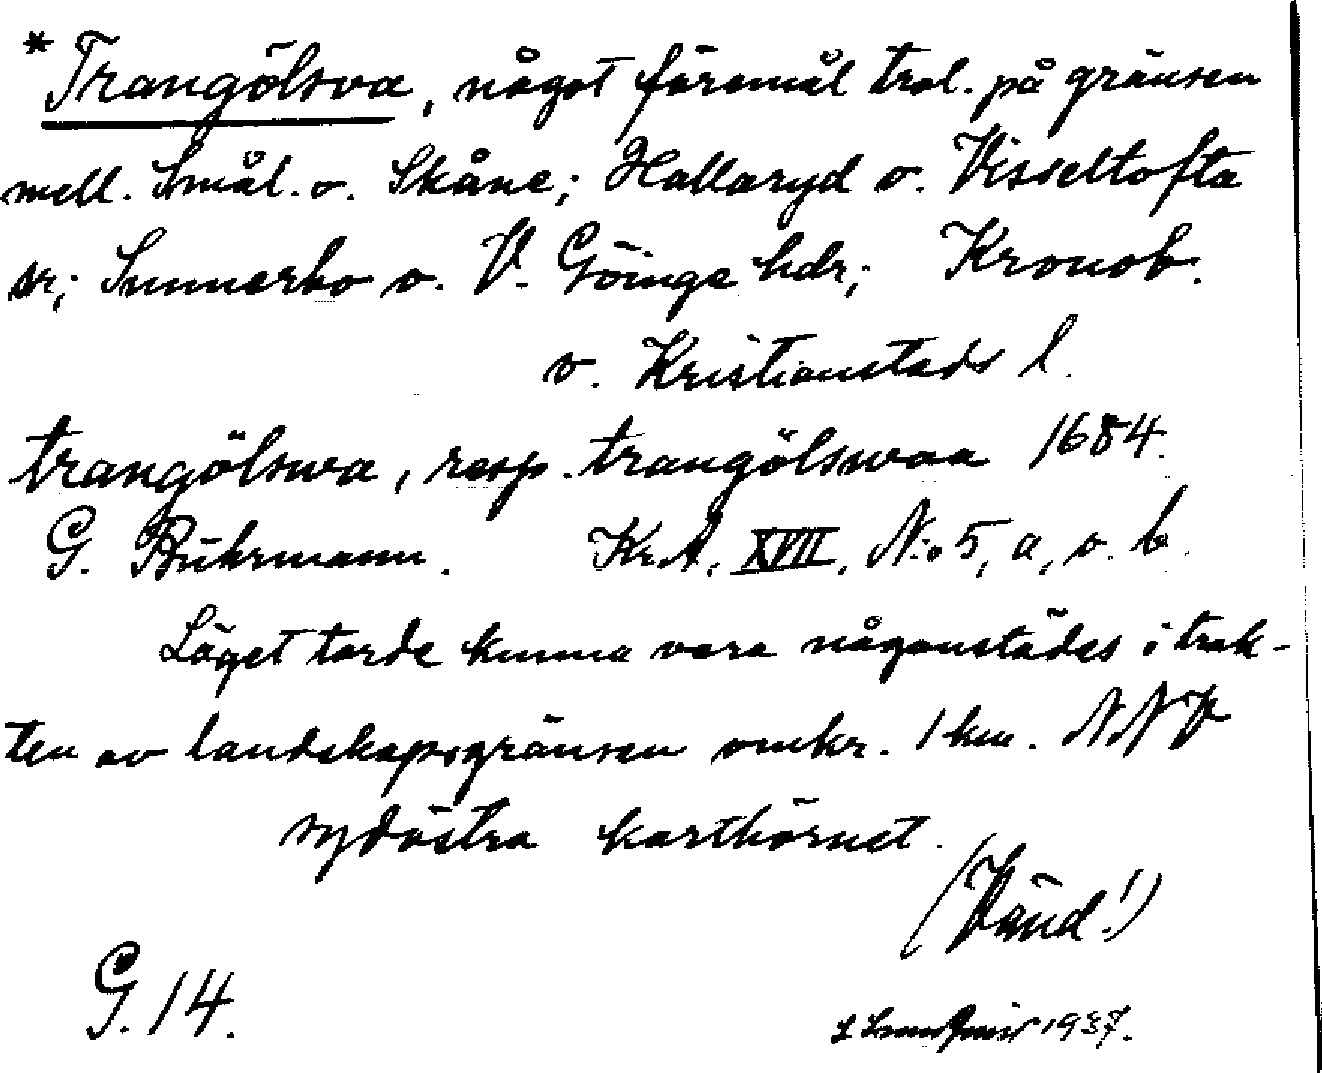 *Trangölsva, något föremål trol. på gränsen
mell. Smål. o. Skåne; Hallaryd o. Visseltofta
sr; Sunnerbo o. V. Göinge hdr; Kronob.
o. Kristianstads l.
trangölswa, resp. trangölswaa 1684.
G. Buhrmann. Kr.A. XVII, N:o 5, a, o. b.
Läget torde kunna vara någonstädes i trak-
ten av landskapsgränsen omkr. 1 km. NNV
sydöstra karthörnet.
(Vänd!)
G. 14.
1937.